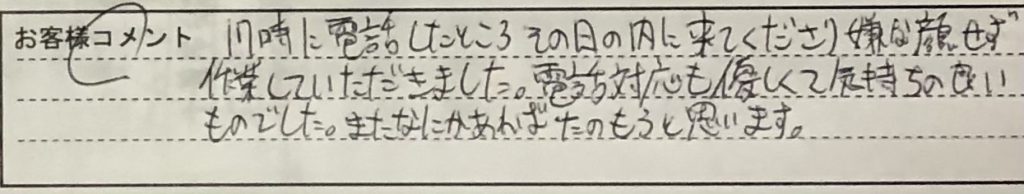 お客様コメント 17時に電話したところその日の内に来てくださり嫌な顔せず
作業していただきました。電話対応も優しくて気持ちの良い
ものでした。またなにかあればたのもうと思います。